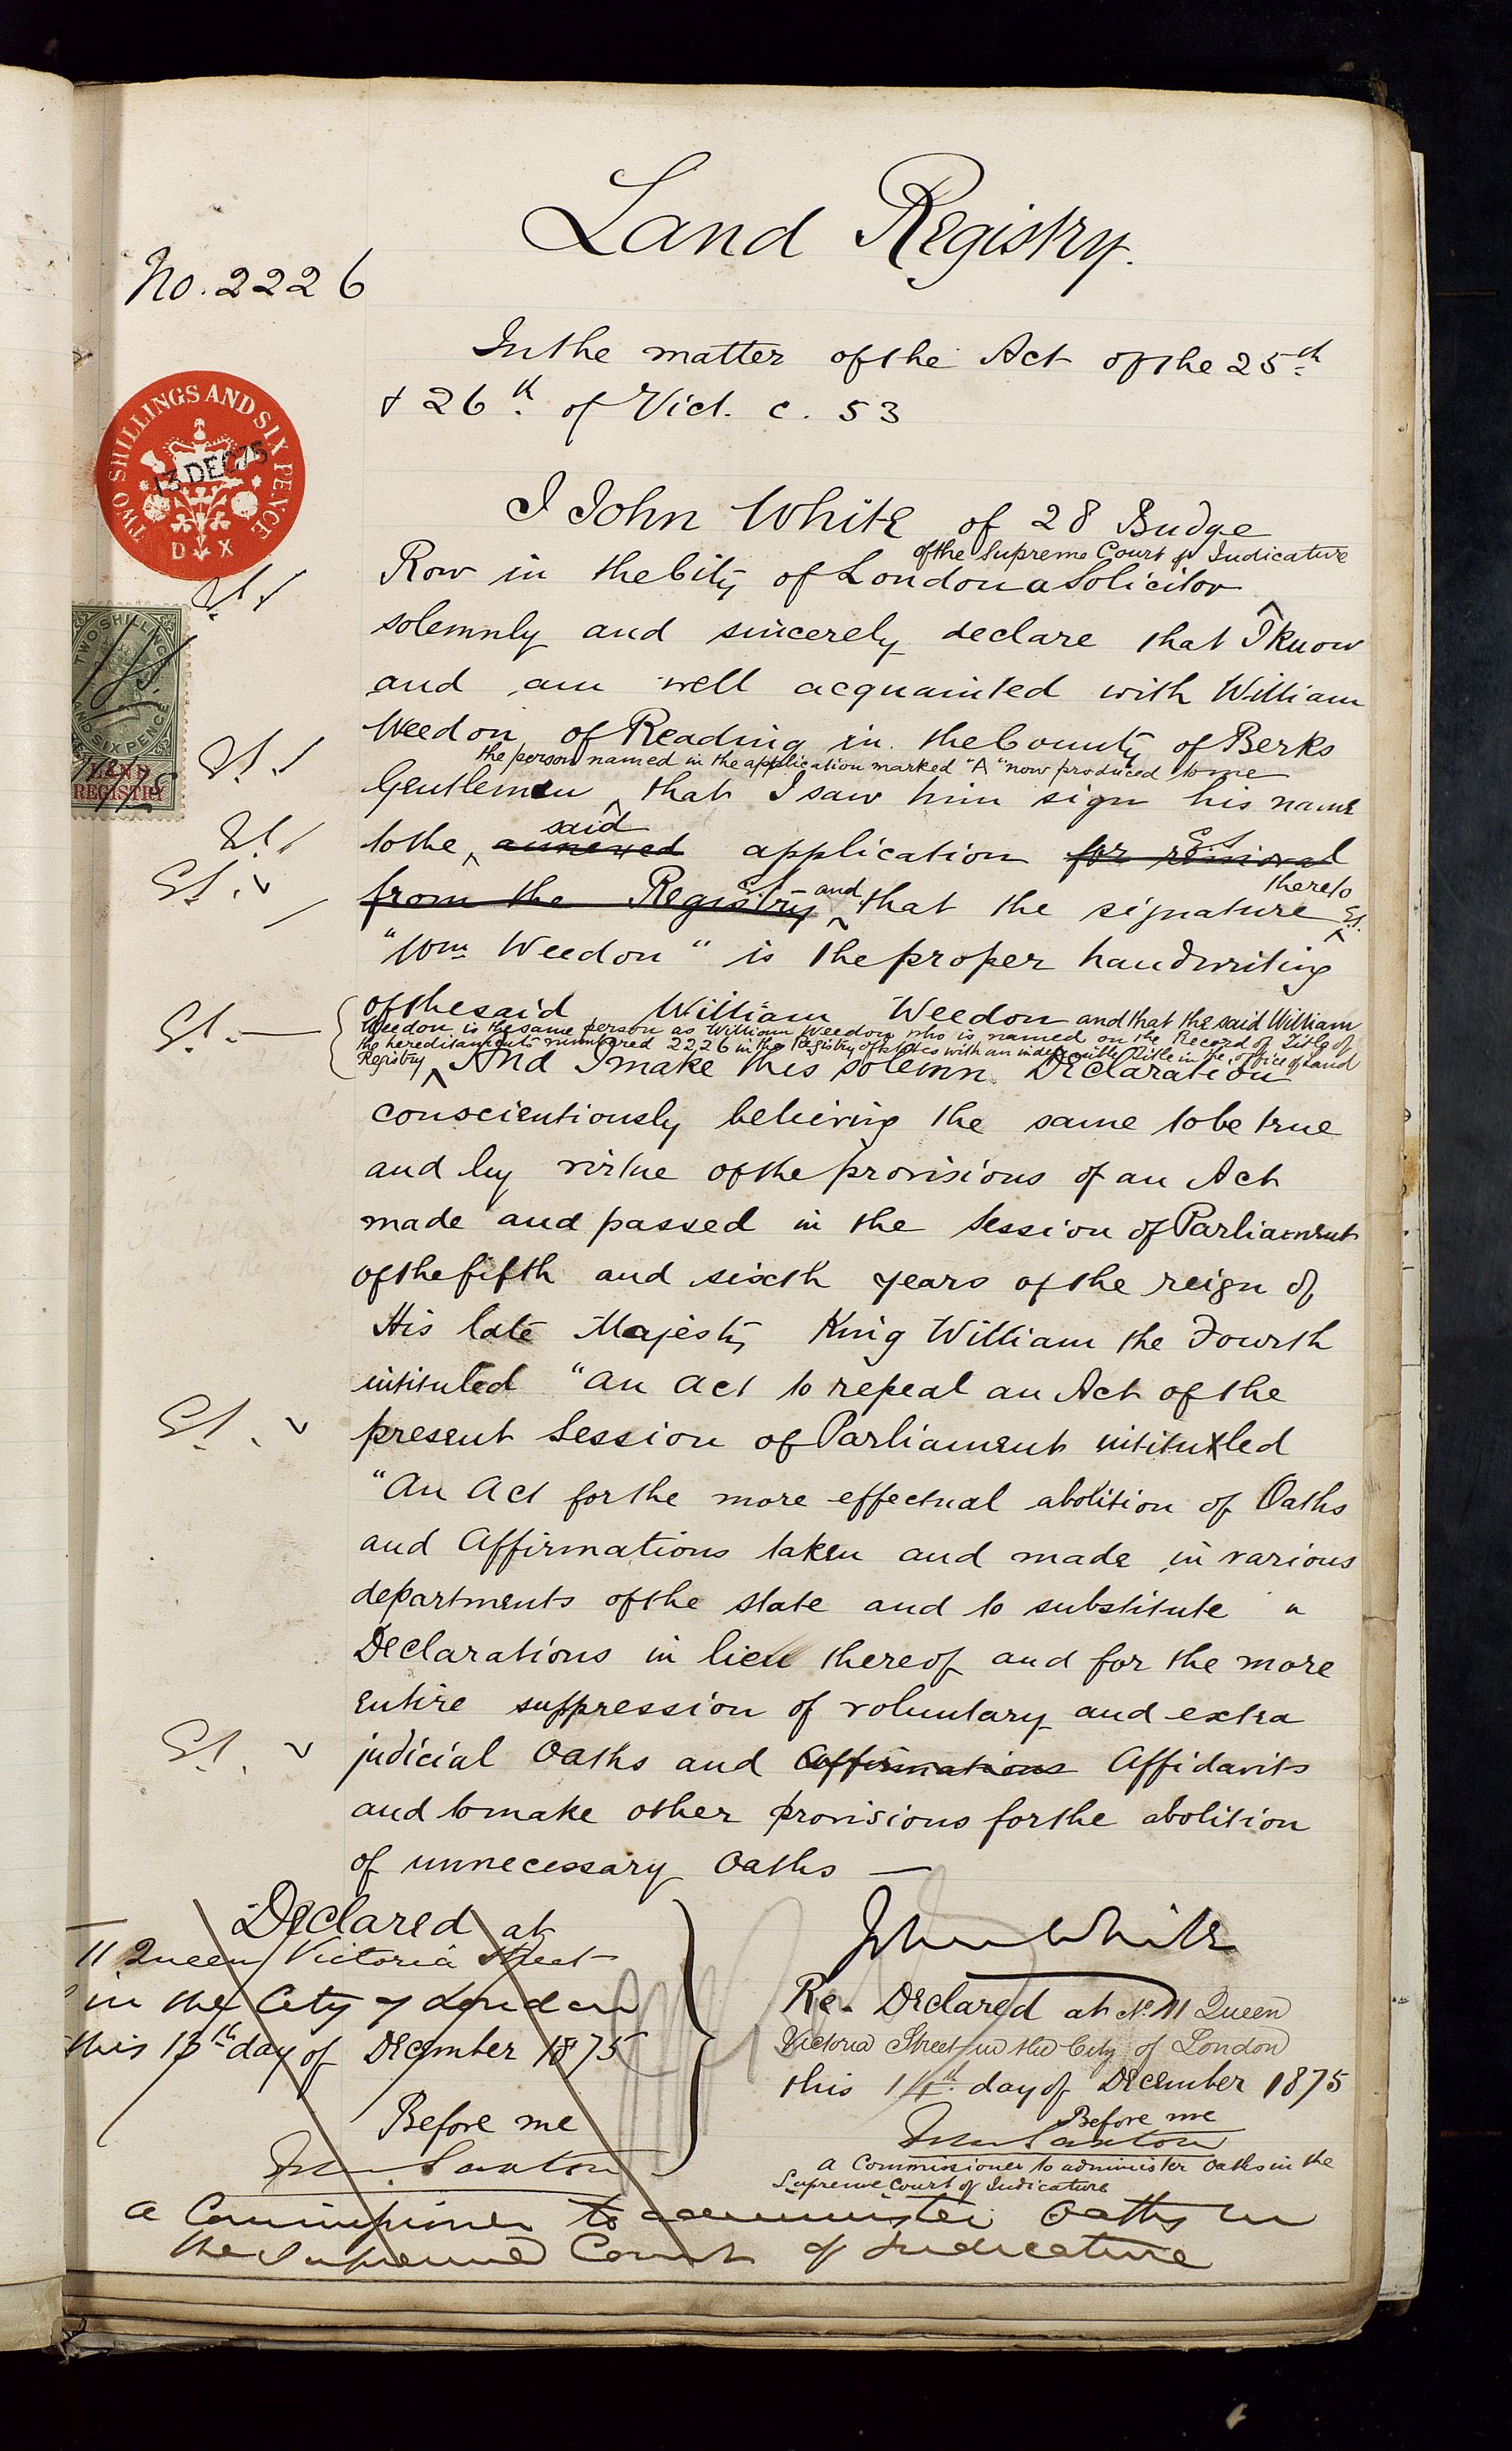 Land Registry.
No. 2226
In the matter of the Act of the 25th
& 26th of Vict. c. 53
TWO SHILLINGS AND SIX PENCE
13 DEC 75
D X
I John White of 28 Budge
of the Supreme Court of Judicature
Row in the City of London a Solicitor
solemnly and sincerely declare that I know
and am well acquainted with William
Weedon of Reading in the County of Berks
the person named in the application marked "A" now produced to me
Gentleman that I saw him sign his name
said
to the annexed application for removal
thereto
from the Registry and that the signature
"Wm Weedon" is the proper handwriting
of the said William Weedon and that the said William
Weedon is the same person as William Weedon who is named on the Record of Title of
the hereditaments numbered 2226 in the Registry of estates with an indefeasible Title in the office of Land
Registry And I make this solemn Declaration
conscientiously believing the same to be true
and by virtue of the provisions of an Act
made and passed in the Session of Parliament
of the fifth and sixth years of the reign of
His late Majesty King William the Fourth
intituled "An Act to repeal an Act of the
present Session of Parliament intituled
"An Act for the more effectual abolition of Oaths
and Affirmations taken and made in various
departments of the state and to substitute
Declarations in lieu thereof and for the more
entire suppression of voluntary and extra
judicial Oaths and Affirmations Affidavits
and to make other provisions for the abolition
of unnecessary Oaths —
TWO SHILLINGS
AND SIX PENCE
LAND
REGISTRY
Declared at
11 Queen Victoria Street
in the City of London
this 13th day of December 1875
Before me
Jno. Saxton
a Commissioner to administer Oaths in
the Supreme Court of Judicature
John White
Re-Declared at No. 11 Queen
Victoria Street in the City of London
this 14th day of December 1875
Before me
Jno. Saxton
a Commissioner to administer Oaths in the
Supreme Court of Judicature